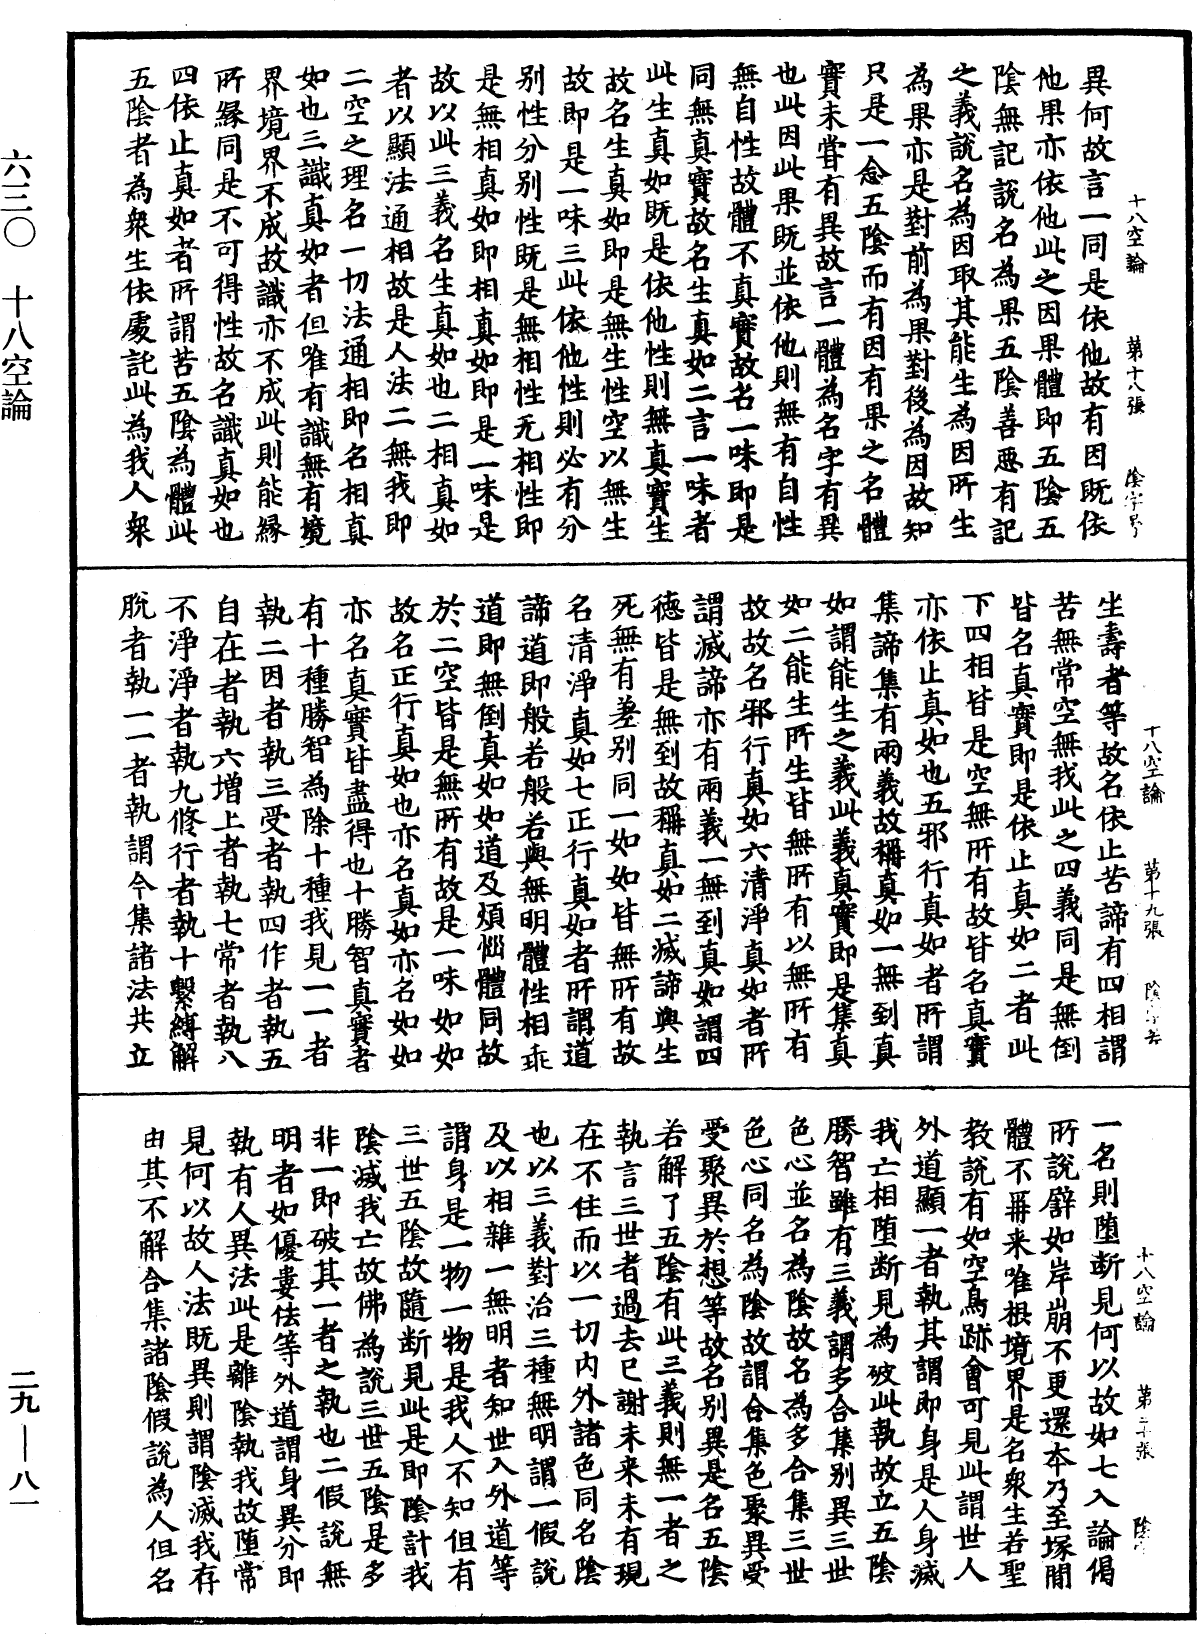 六三〇　十八空論
二九—八一
十八空論　第十八張　陰字号
異何故言一同是依他故有因既依
他果亦依他此之因果體即五陰五
陰無記說名為果五陰善惡有記
之義說名為因取其能生為因所生
為果亦是對前為果對後為因故知
只是一念五陰而有因有果之名體
實未嘗有異故言一體為名字有異
也此因此果既並依他則無有自性
無自性故體不真實故名一味即是
同無真實故名生真如二言一味者
此生真如既是依他性則無真實生
故名生真如即是無生性空以無生
故即是一味三此依他性則必有分
別性分別性既是無相性无相性即
是無相真如即相真如即是一味是
故以此三義名生真如也二相真如
者以顯法通相故是人法二無我即
二空之理名一切法通相即名相真
如也三識真如者但唯有識無有境
界境界不成故識亦不成此則能緣
所緣同是不可得性故名識真如也
四依止真如者所謂苦五陰為體此
五陰者為衆生依處託此為我人衆
十八空論　第十九張
生壽者等故名依止苦諦有四相謂
苦無常空無我此之四義同是無倒
皆名真實即是依止真如二者此
下四相皆是空無所有故皆名真實
亦依止真如也五邪行真如者所謂
集諦集有兩義故稱真如一無到真
如謂能生之義此義真實即是集真
如二能生所生皆無所有以無所有
故故名邪行真如六清淨真如者所
謂滅諦亦有兩義一無到真如謂四
德皆是無到故稱真如二滅諦與生
死無有差別同一如如皆無所有故
名清淨真如七正行真如者所謂道
諦道即般若般若與無明體性相乖
道即無倒真如如道及煩惱體同故
於二空皆是無所有故是一味如如
故名正行真如也亦名真如亦名如如
亦名真實皆盡得也十勝智真實者
有十種勝智為除十種我見一一者
執二因者執三受者執四作者執五
自在者執六增上者執七常者執八
不淨淨者執九修行者執十繫縛解
脫者執一一者執謂今集諸法共立
十八空論　第二十張　陰字
一名則墮斷見何以故如七入論偈
所說譬如岸崩不更還本乃至塚間
體不冊来唯根境界是名衆生若聖
教說有如空鳥跡會可見此謂世人
外道顯一者執其謂即身是人身滅
我亡相墮斷見為破此執故立五陰
勝智雖有三義謂多合集別異三世
色心並名為陰故名為多合集三世
色心同名為陰故謂合集色聚異受
受聚異於想等故名別異是名五陰
若解了五陰有此三義則無一者之
執言三世者過去已謝未来未有現
在不住而以一切內外諸色同名陰
也以三義對治三種無明謂一假說
及以相雜一無明者知世入外道等
謂身是一物一物是我人不知但有
三世五陰故隨斷見此是即陰計我
陰滅我亡故佛為說三世五陰是多
非一即破其一者之執也二假說無
明者如優婁佉等外道謂身異分即
執有人異法此是離陰執我故墮常
見何以故人法既異則謂陰滅我存
由其不解合集諸陰假說為人但名